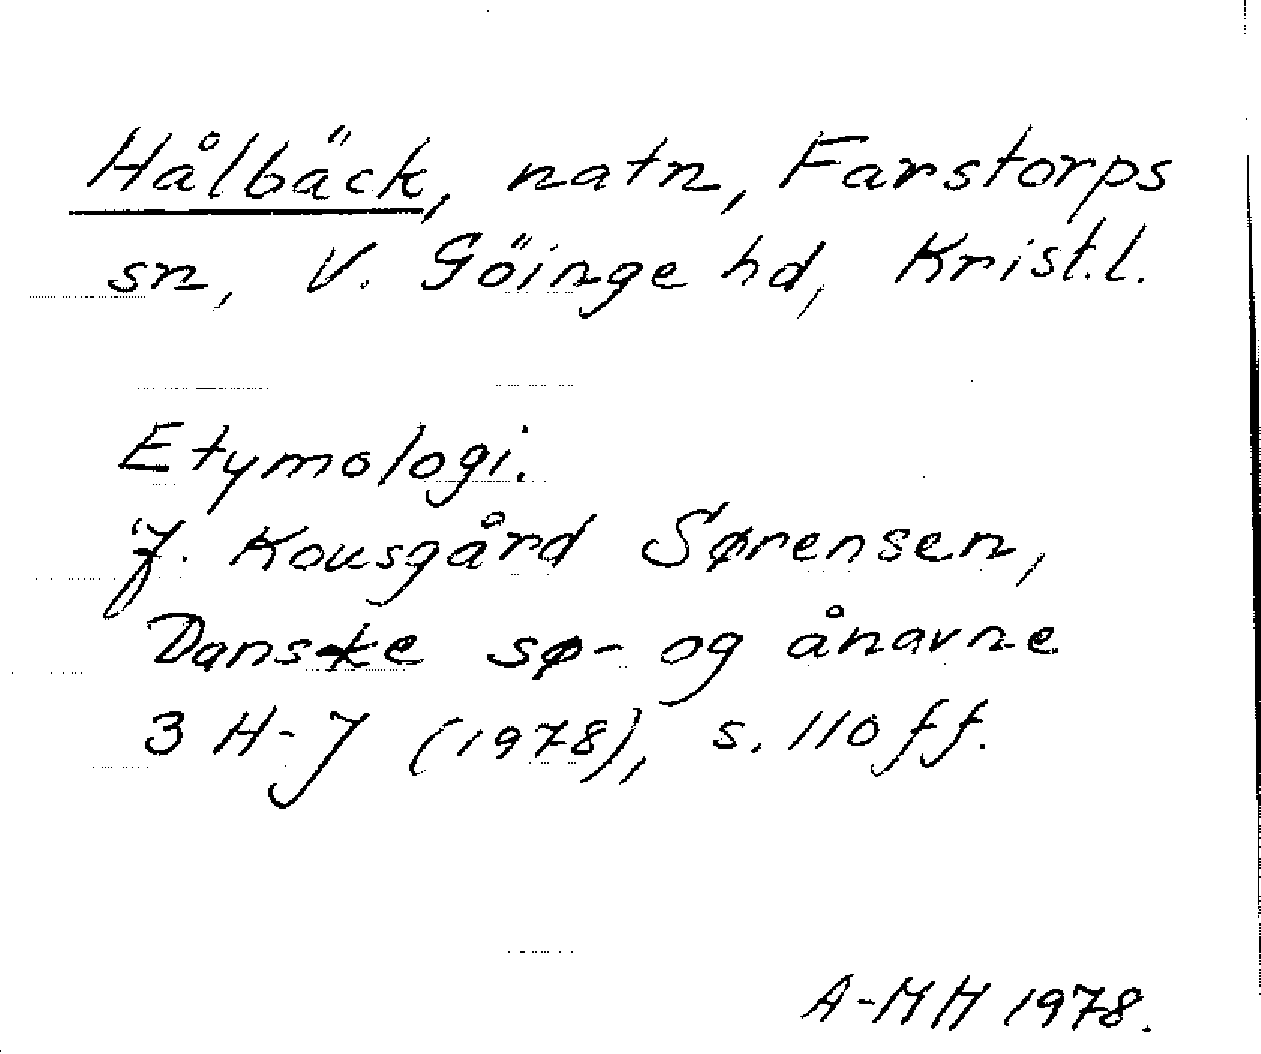 Hålbäck, natn, Farstorps
sn, V. Göinge hd, Krist.l.
Etymologi.
J. Kousgård Sørensen,
Danske sø- og ånavne
3 H-J (1978), s. 110 ff.
A-MH 1978.